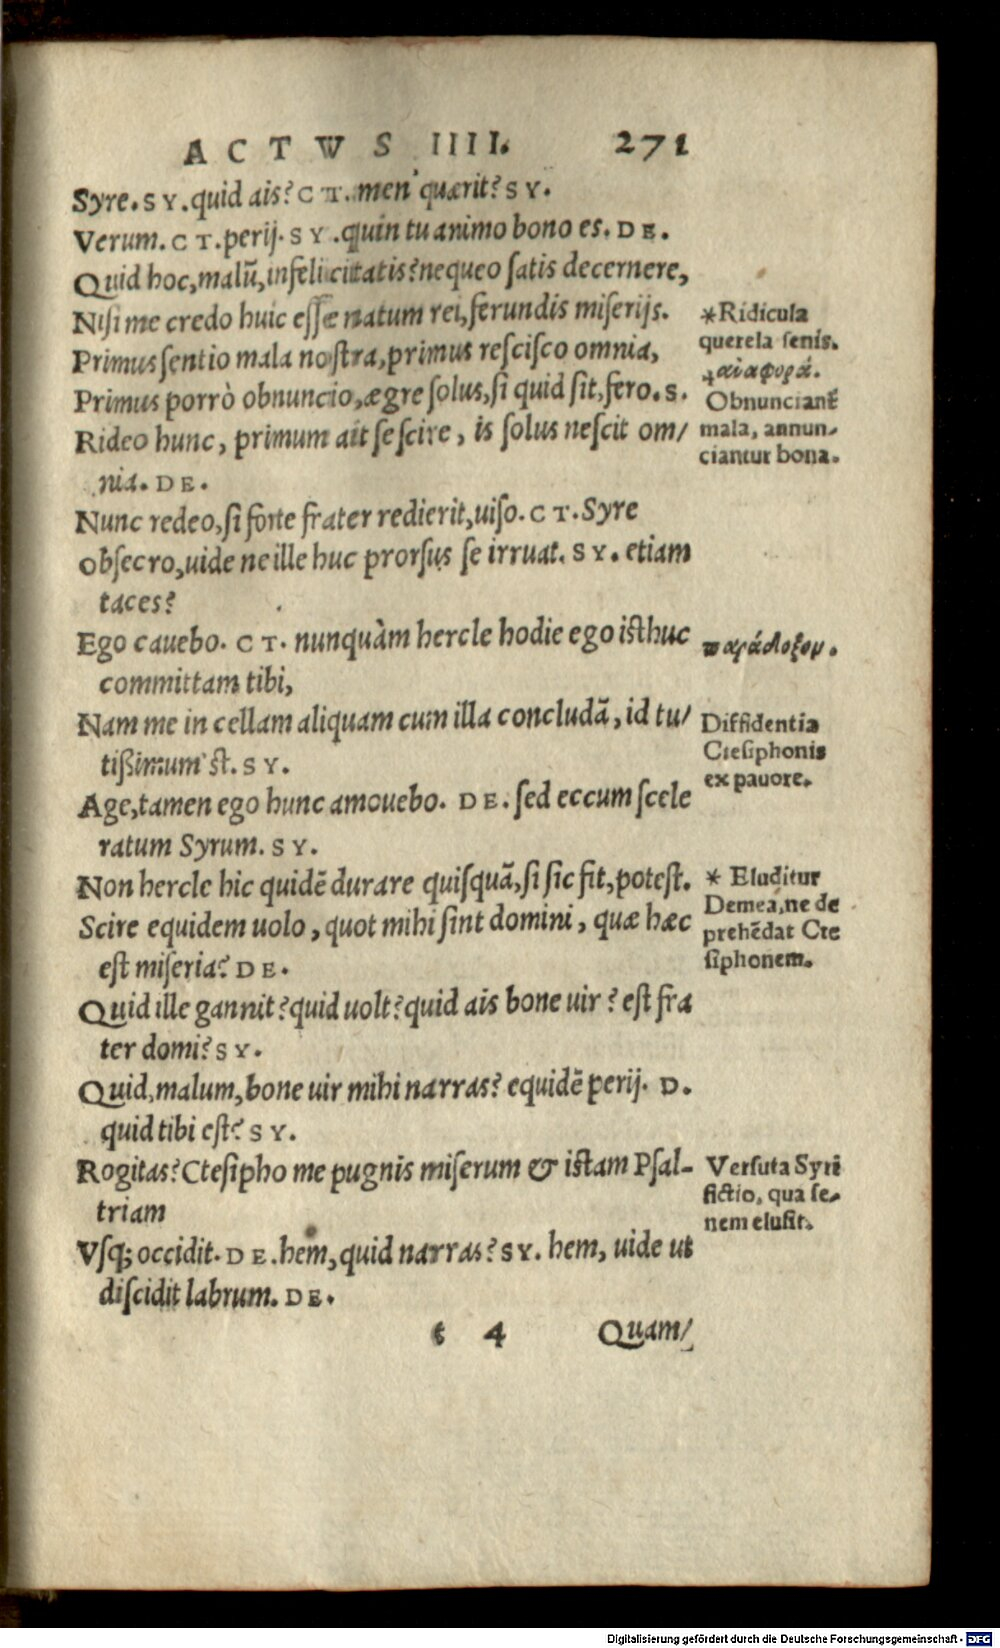 ACTVS IIII. 271
Syre. SY. quid ais? CT. men' quærit? SY.
Verum. CT. perij. SY. quin tu animo bono es. DE.
Quid hoc, malũ, infelicitatis? nequeo satis decernere,
Nisi me credo huic esse natum rei, ferundis miserijs.
Primus sentio mala nostra, primus rescisco omnia,
Primus porrò obnuncio, ægre solus, si quid sit, fero. S.
Rideo hunc, primum ait se scire, is solus nescit om/
nia. DE.
Nunc redeo, si forte frater redierit, uiso. CT. Syre
obsecro, uide ne ille huc prorsus se irruat. SY. etiam
taces?
Ego cauebo. CT. nunquàm hercle hodie ego isthuc
committam tibi,
Nam me in cellam aliquam cum illa concludã, id tu/
tißimum'st. SY.
Age, tamen ego hunc amouebo. DE. sed eccum scele
ratum Syrum. SY.
Non hercle hic quidẽ durare quisquã, si sic fit, potest.
Scire equidem uolo, quot mihi sint domini, quæ hæc
est miseria? DE.
Quid ille gannit? quid uolt? quid ais bone uir? est fra
ter domi? SY.
Quid, malum, bone uir mihi narras? equidẽ perij. D.
quid tibi est? SY.
Rogitas? Ctesipho me pugnis miserum & istam Psal-
triam
Vsq; occidit. DE. hem, quid narras? SY. hem, uide ut
discidit labrum. DE.
t 4 Quam/
*Ridicula
querela senis.
Obnunciant̃
mala, annun-
ciantur bona.
παράδοξον.
Diffidentia
Ctesiphonis
ex pauore.
* Eluditur
Demea, ne de
prehẽdat Cte
siphonem.
Versuta Syri
fictio, qua se-
nem elusit.
Digitalisierung gefördert durch die Deutsche Forschungsgemeinschaft - DFG